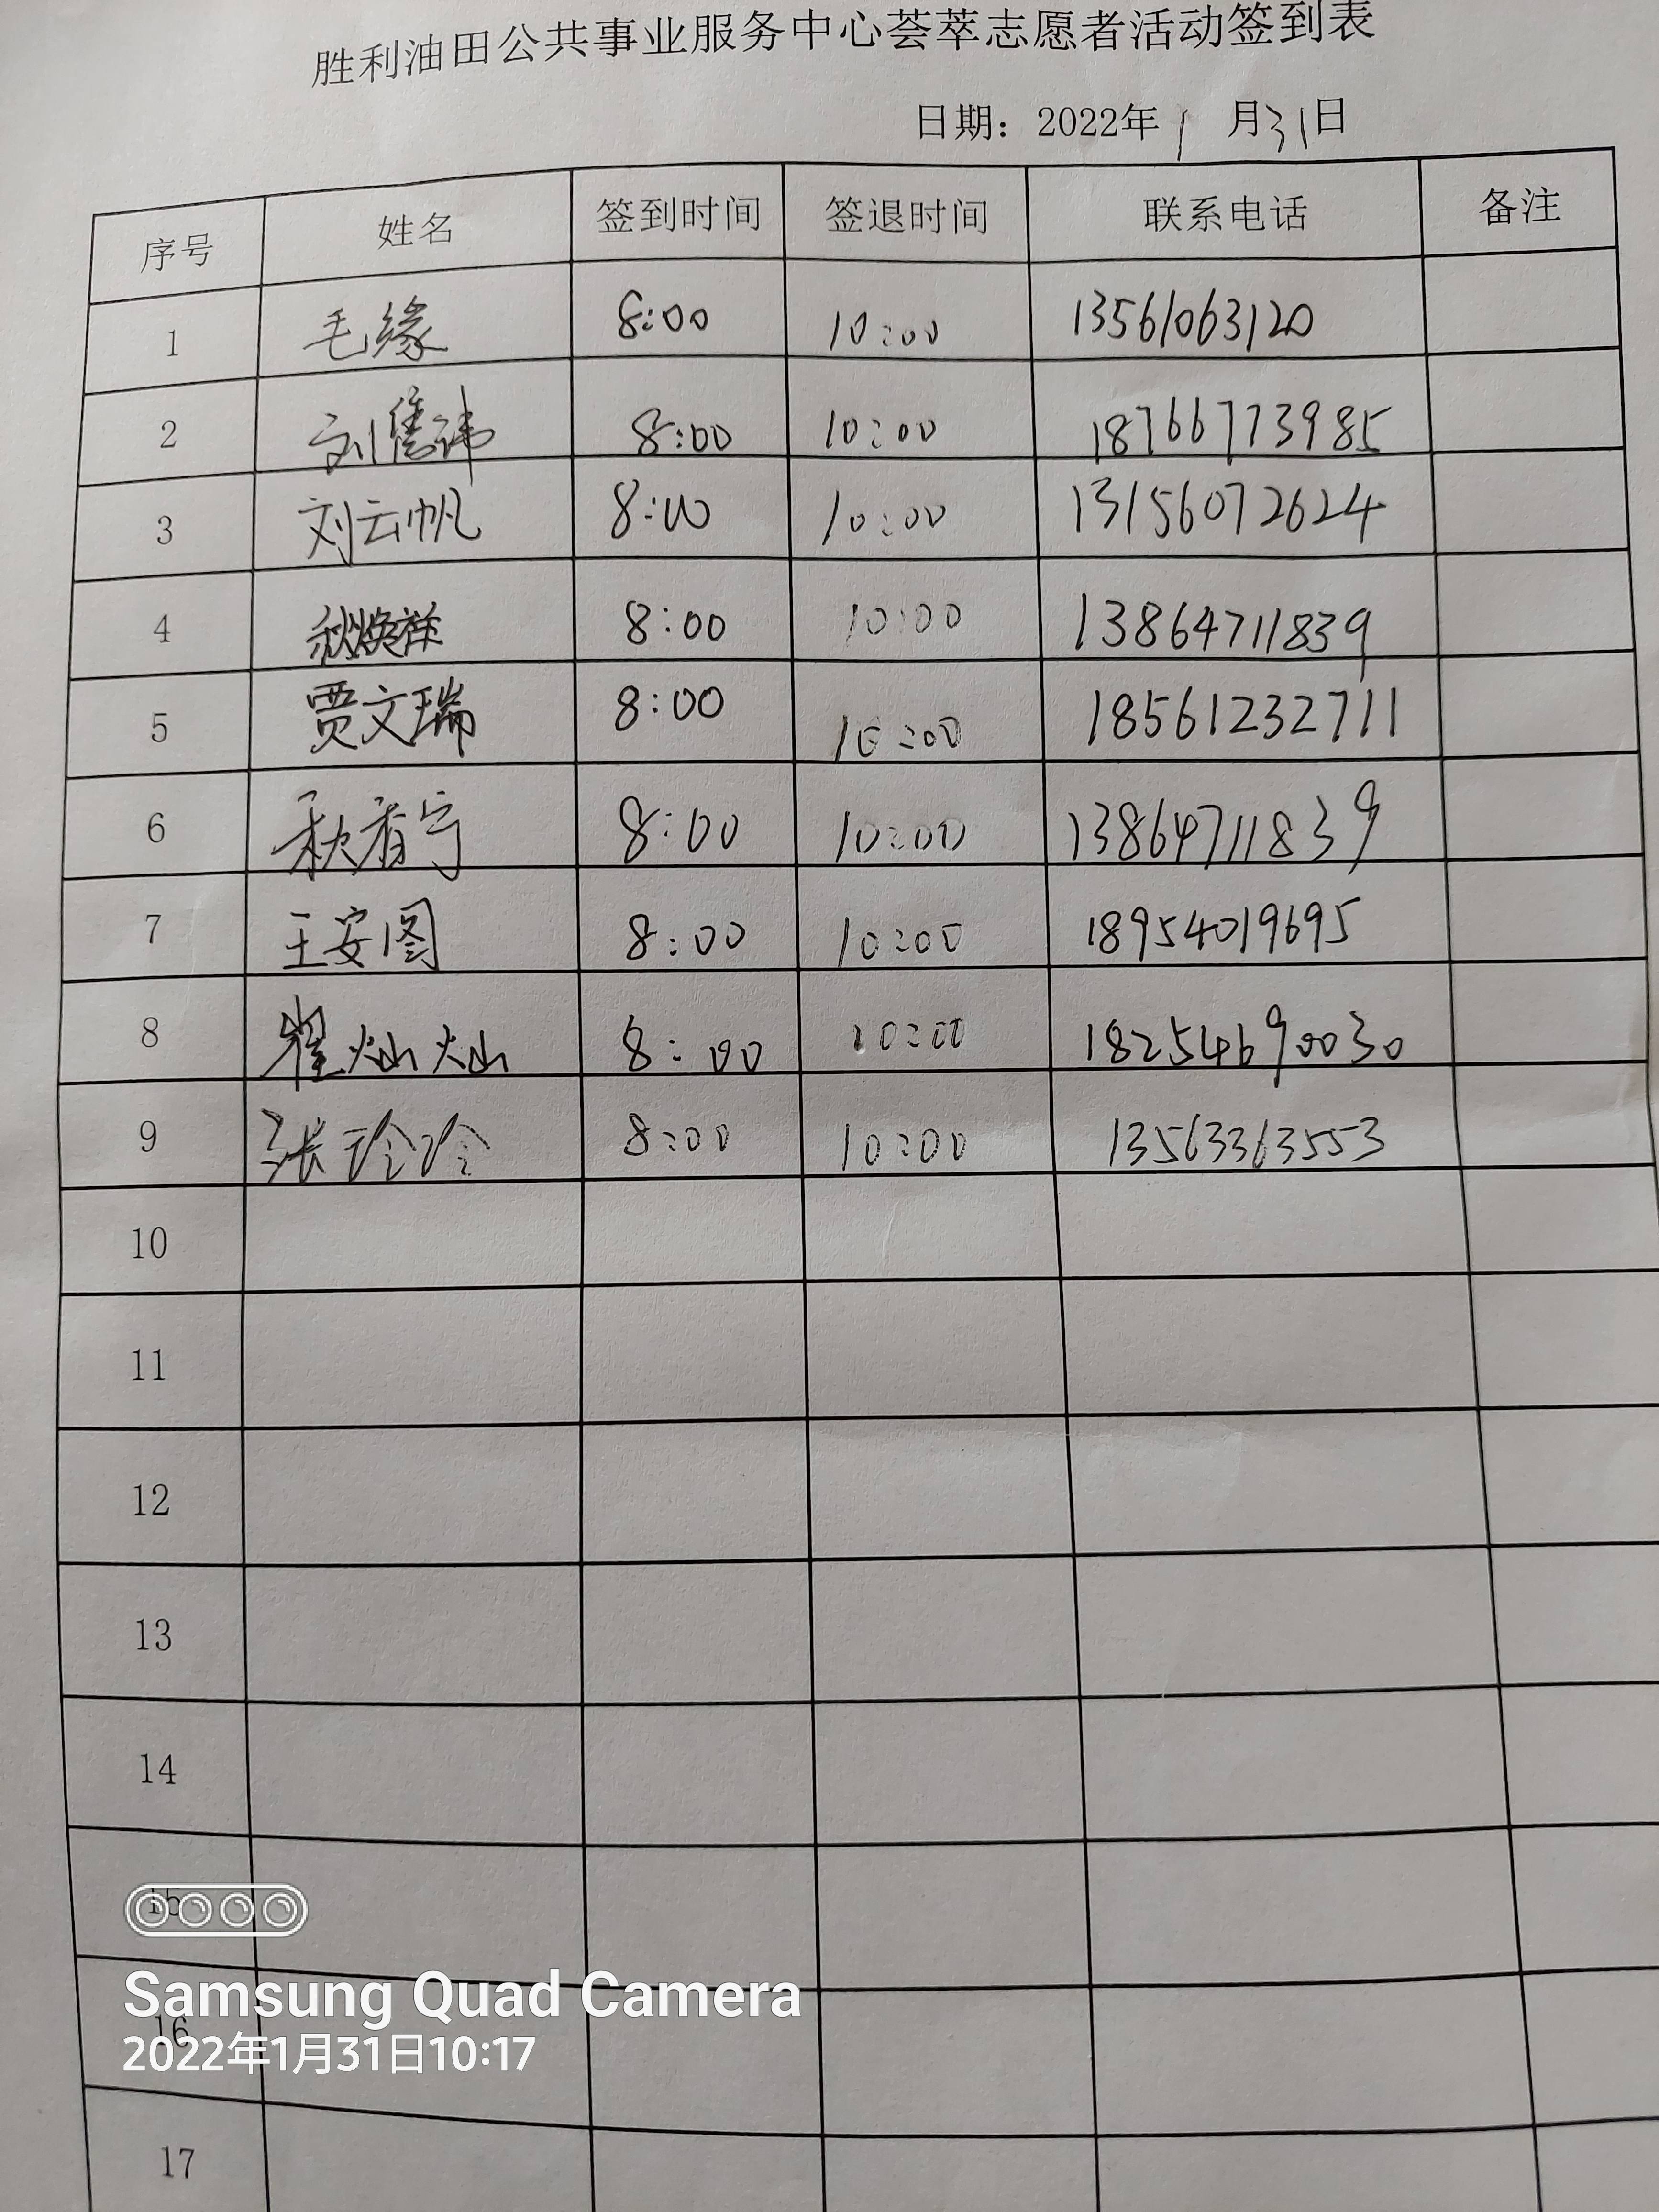 胜利油田公共事业服务中心荟萃志愿者活动签到表
日期：2022年1月31日
序号 姓名 签到时间 签退时间 联系电话 备注
1 毛缘 8:00 10:00 13561063120
2 刘隽祎 8:00 10:00 18766773985
3 刘云帆 8:00 10:00 13156072624
4 秋焕祥 8:00 10:00 13864711839
5 贾文瑞 8:00 10:00 18561232711
6 秋香宁 8:00 10:00 13864711839
7 王安图 8:00 10:00 18954019695
8 翟灿灿 8:00 10:00 18254690030
9 张玲玲 8:00 10:00 13563363553
10
11
12
13
14
15
Samsung Quad Camera
16
2022年1月31日10:17
17